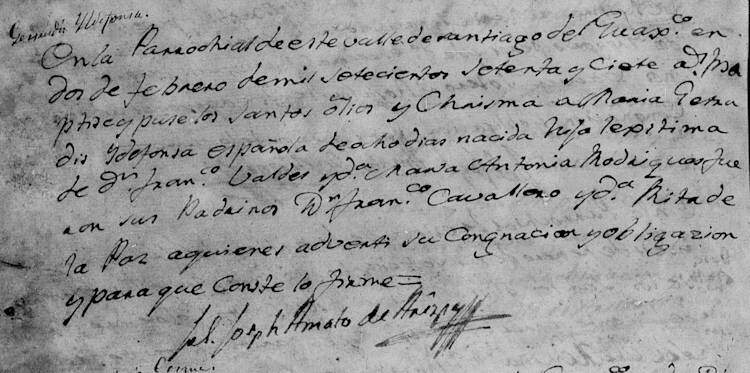 Gertrudis Yldefonsa.
En la Parrochial de este Valle de santiago del Guax.co en
dos de febrero de mil setecientos setenta y Ciete a.s
ptize y puse los santos olios y Chrisma a Maria Getru
dis Ydefonsa española de ocho dias nacida hija lexitima
de dn fran.co Valdes y d.a Maria Antonia Rodrigues fue
ron sus Padrinos Dn fran.co Cavallero y d.a Rita de
la Paz aquienes adverti su Congnacion y obligazion
y para que Conste lo firme =
Joseph Amato de